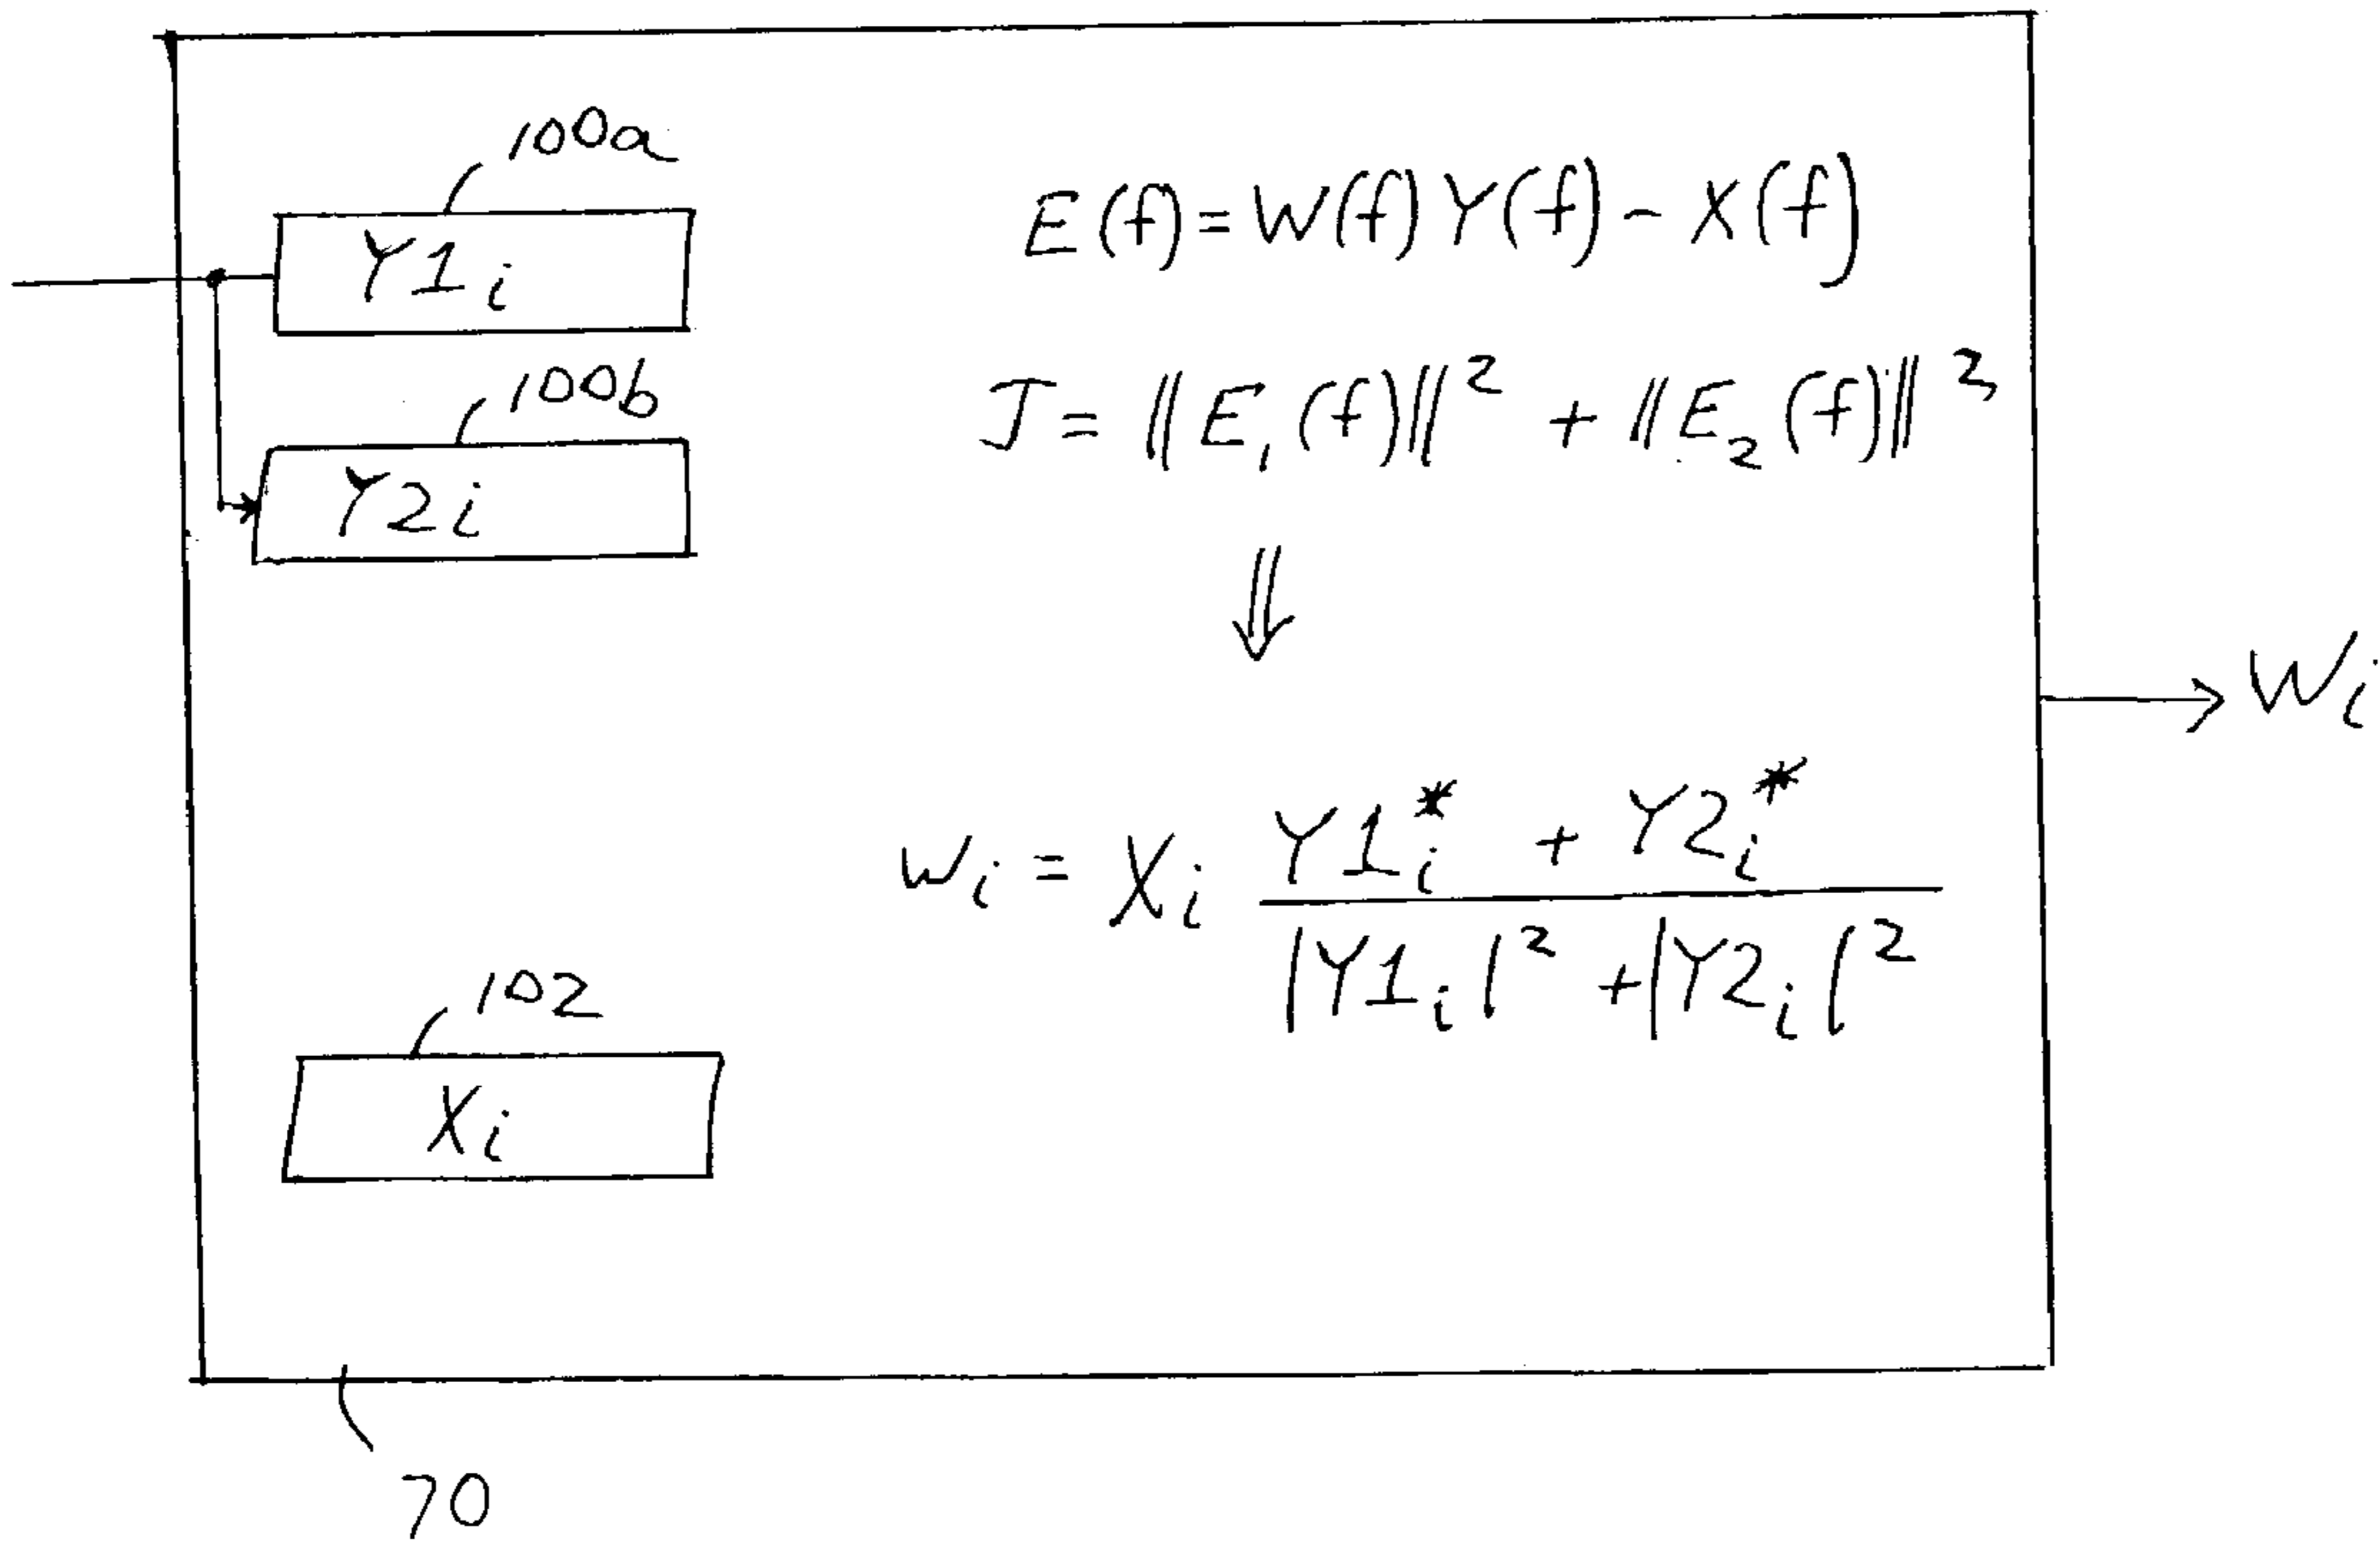 100a
Y1i
100b
Y2i
E(f)=W(f)Y(f)-X(f)
J=||E1(f)||²+||E2(f)||²
⇓
Wi
Wi = Xi (Y1i* + Y2i*) / (|Y1i|² + |Y2i|²)
102
Xi
70